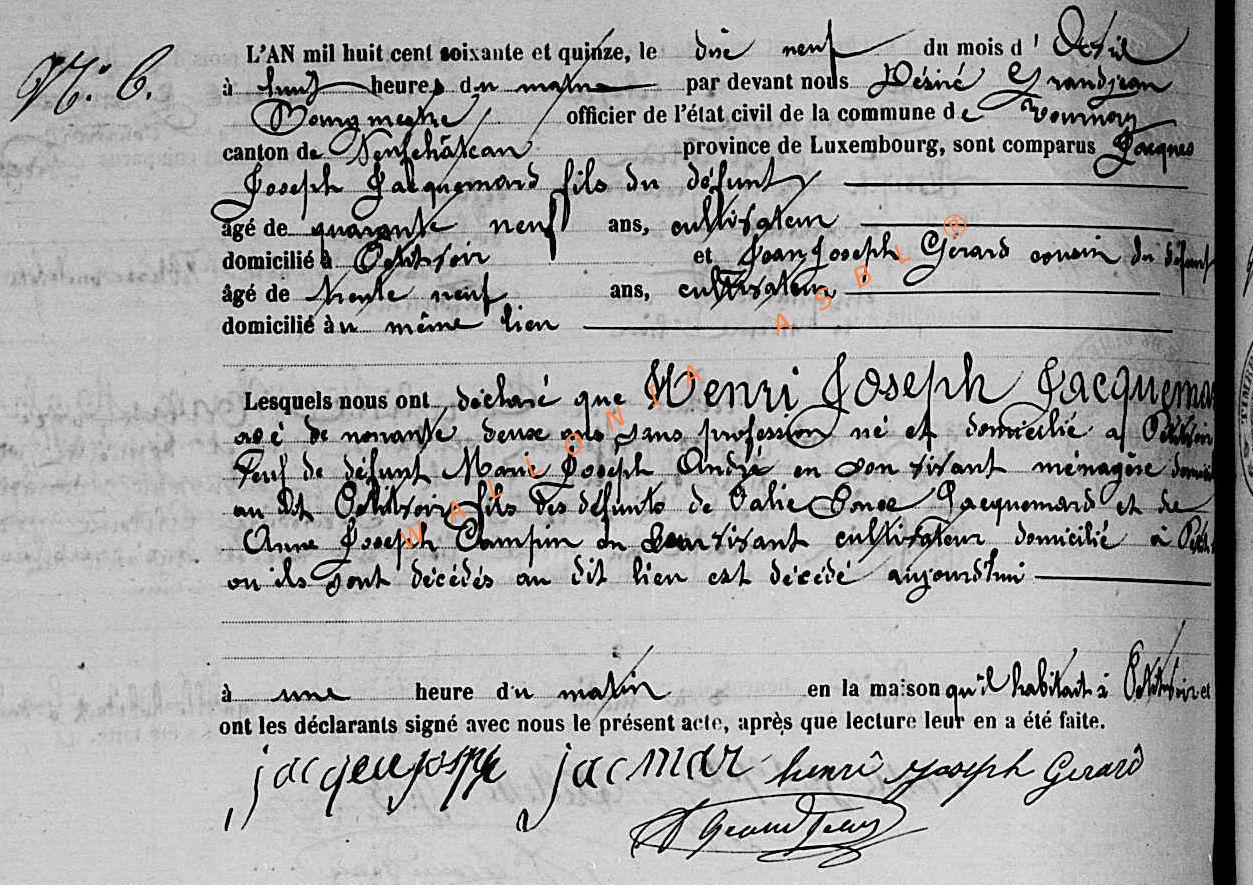 N° 6.
L'AN mil huit cent soixante et quinze, le dix neuf du mois d'Avril
à huit heures du matin par devant nous Désiré Grandjean
Bourgmestre officier de l'état civil de la commune de Tournay
canton de Neufchâteau province de Luxembourg, sont comparus Jacques
Joseph Jacquemard fils du défunt
âgé de quarante neuf ans, cultivateur
domicilié à Petitvoir et Jean Joseph Gérard cousin du défunt
âgé de trente neuf ans, cultivateur
domicilié au même lieu
Lesquels nous ont déclaré que Henri Joseph Jacquemar
agé de nonante deux ans sans profession né et domicilié a Petitvoir
Veuf de défunt Marie Joseph André en son vivant ménagère domici
au dit Petitvoir fils des défunts de Jacquemard et de
Anne Joseph en leur vivant cultivateur domicilié à Petit
ou ils sont décédés au dit lieu est décédé aujourd'hui
à une heure du matin en la maison qu'il habitait à Petitvoir et
ont les déclarants signé avec nous le présent acte, après que lecture leur en a été faite.
jacques joseph jacmar henri joseph Gerard
D Grandjean
WALLONIA ASBL ®